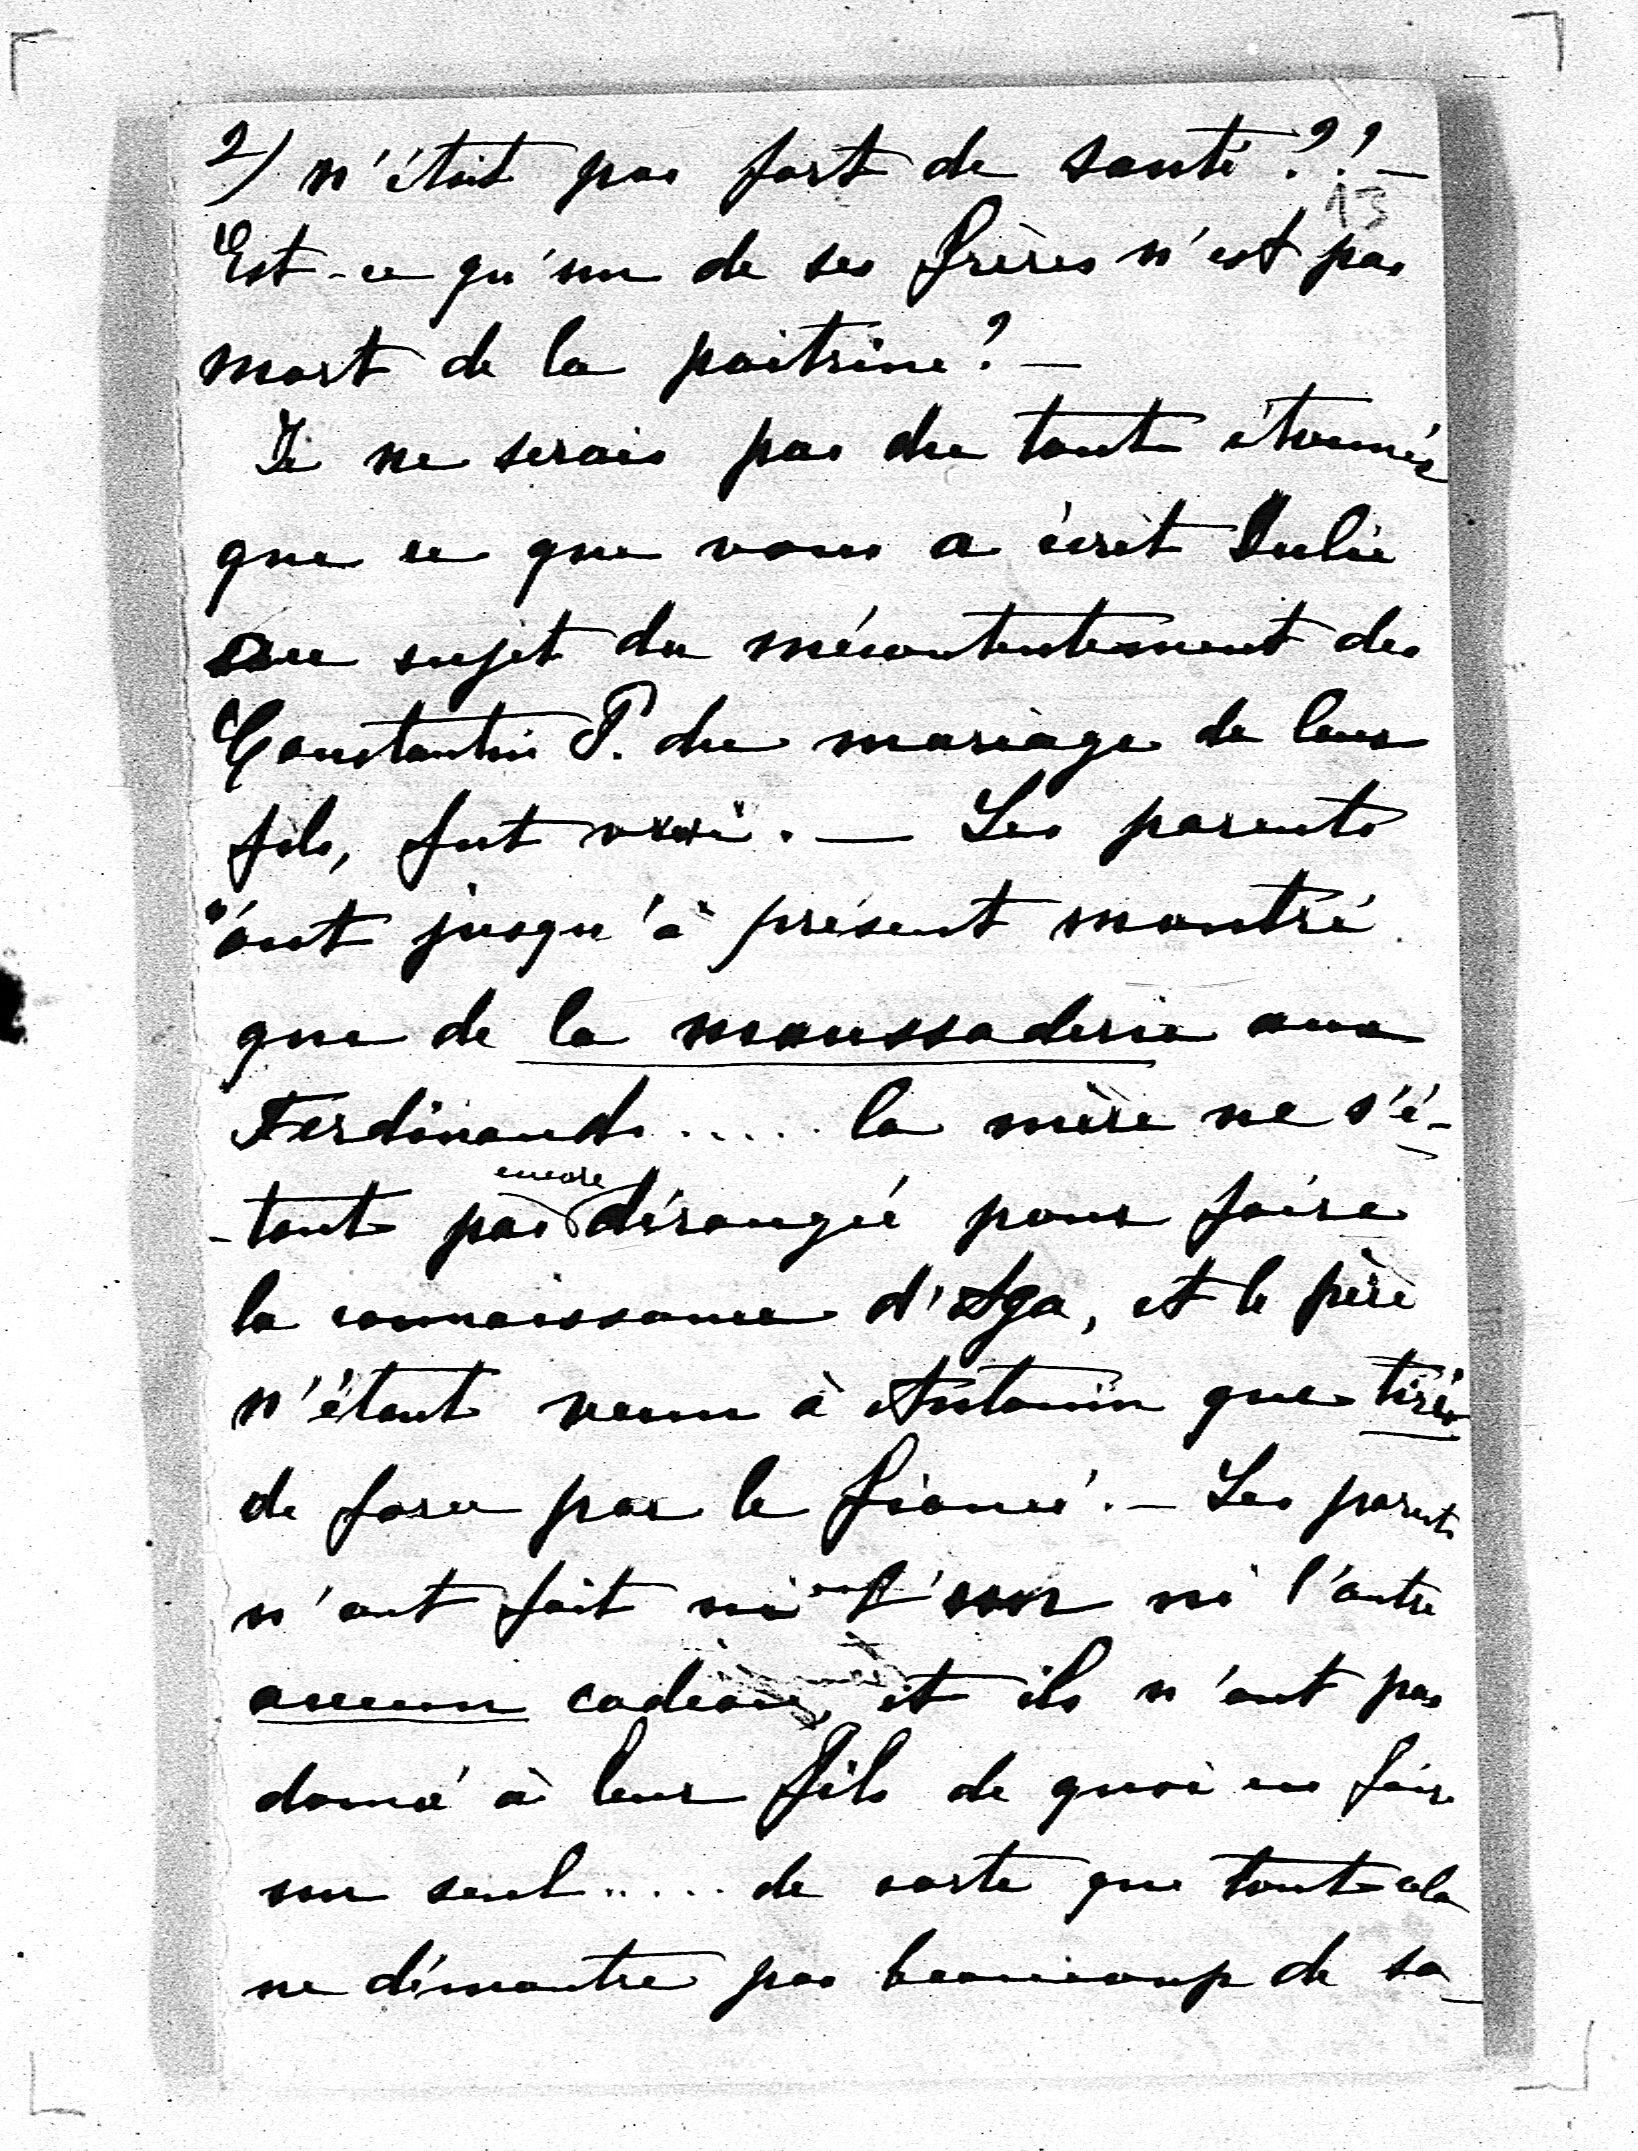 2) n'était pas fort de santé ??—
13
Est-ce qu'un de ses frères n'est pas
mort de la poitrine? —
Je ne serais pas du tout étonnée
que ce que vous a écrit Julie
au sujet du mécontentement des
Constantin P. du mariage de leur
fils, fut vrai. — Les parents
n'ont jusqu'à présent montré
que de la maussaderie aux
Ferdinands ..... la mère ne s'é-
-tant pas encore dérangée pour faire
la connaissance d'Aga, et le père
n'étant venu à Antonin que tiré
de force par le fiancé. — Les parents
n'ont fait ni l'un ni l'autre
aucun cadeau, et ils n'ont pas
donné à leur fils de quoi en faire
un seul ..... de sorte que tout cela
ne démontre pas beaucoup de sa-